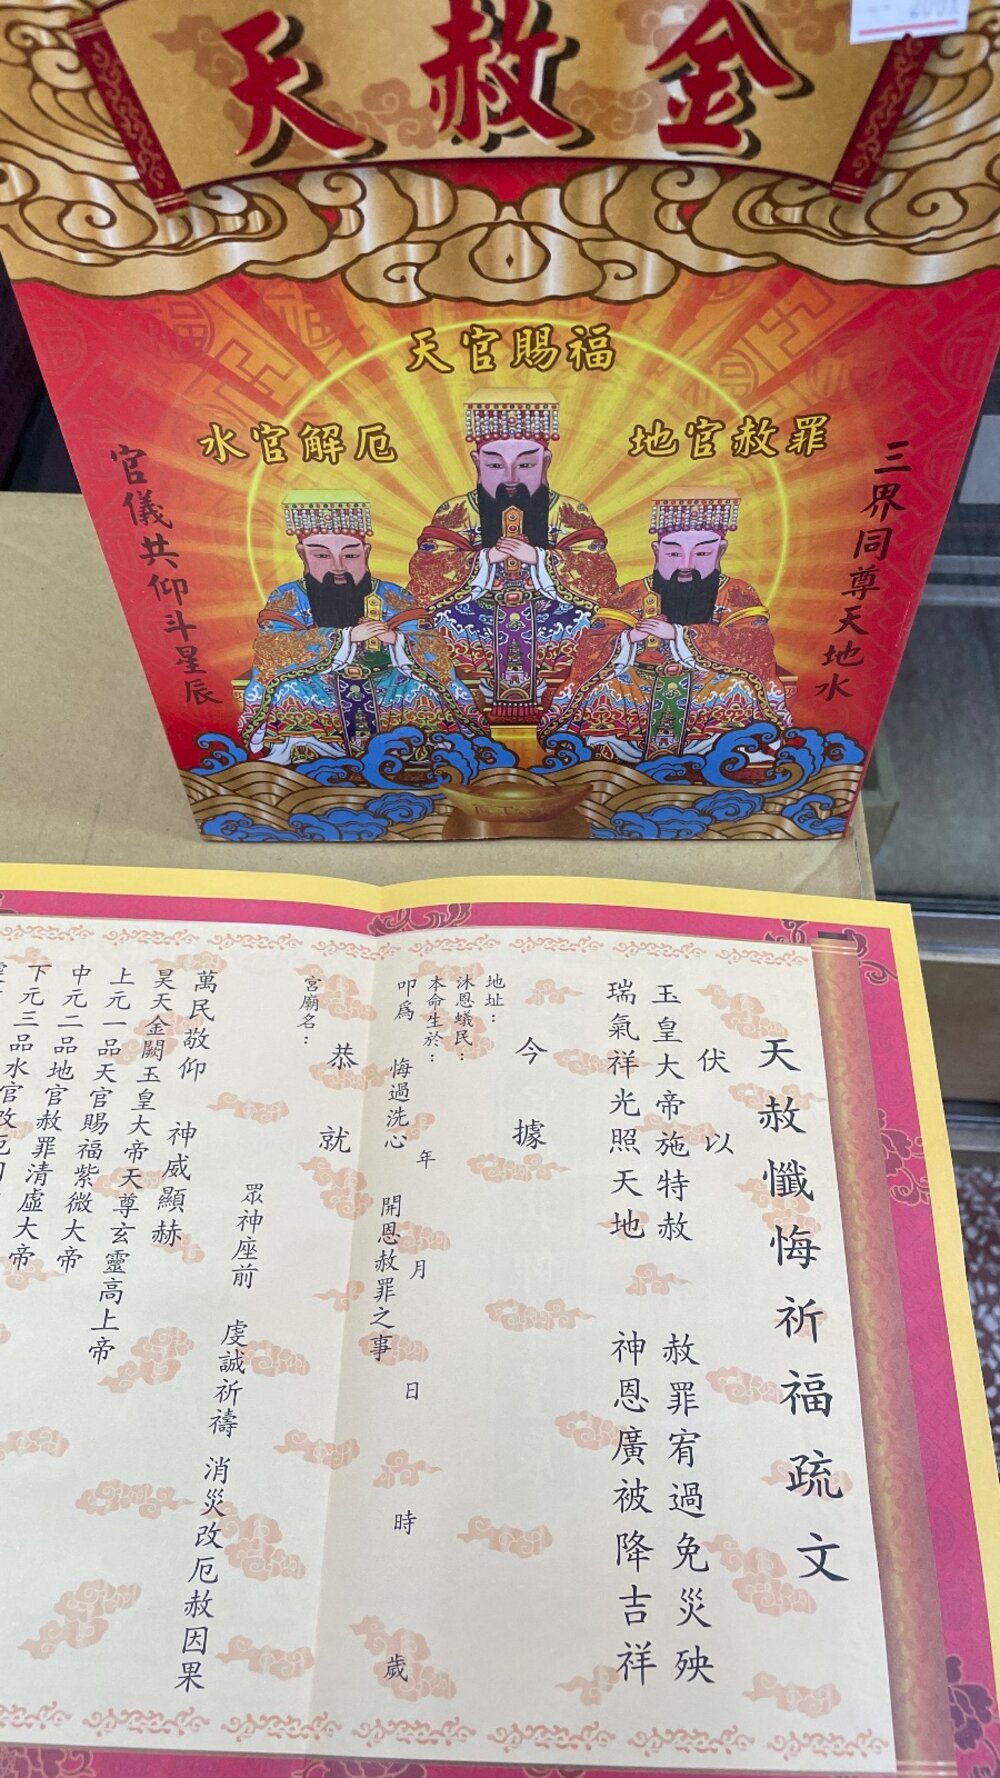 天赦金
天官賜福
水官解厄
地官赦罪
三界同尊天地水
官儀共仰斗星辰
天赦懺悔祈福疏文
伏以
玉皇大帝施特赦 赦罪宥過免災殃
瑞氣祥光照天地 神恩廣被降吉祥
今據
地址：
沐恩蟻民：
本命生於： 年 月 日 時 歲
叩為 悔過洗心 開恩赦罪之事
恭就
宮廟名：
眾神座前 虔誠祈禱 消災改厄赦因果
萬民敬仰 神威顯赫
昊天金闕玉皇大帝天尊玄靈高上帝
上元一品天官賜福紫微大帝
中元二品地官赦罪清虛大帝
下元三品水官改厄